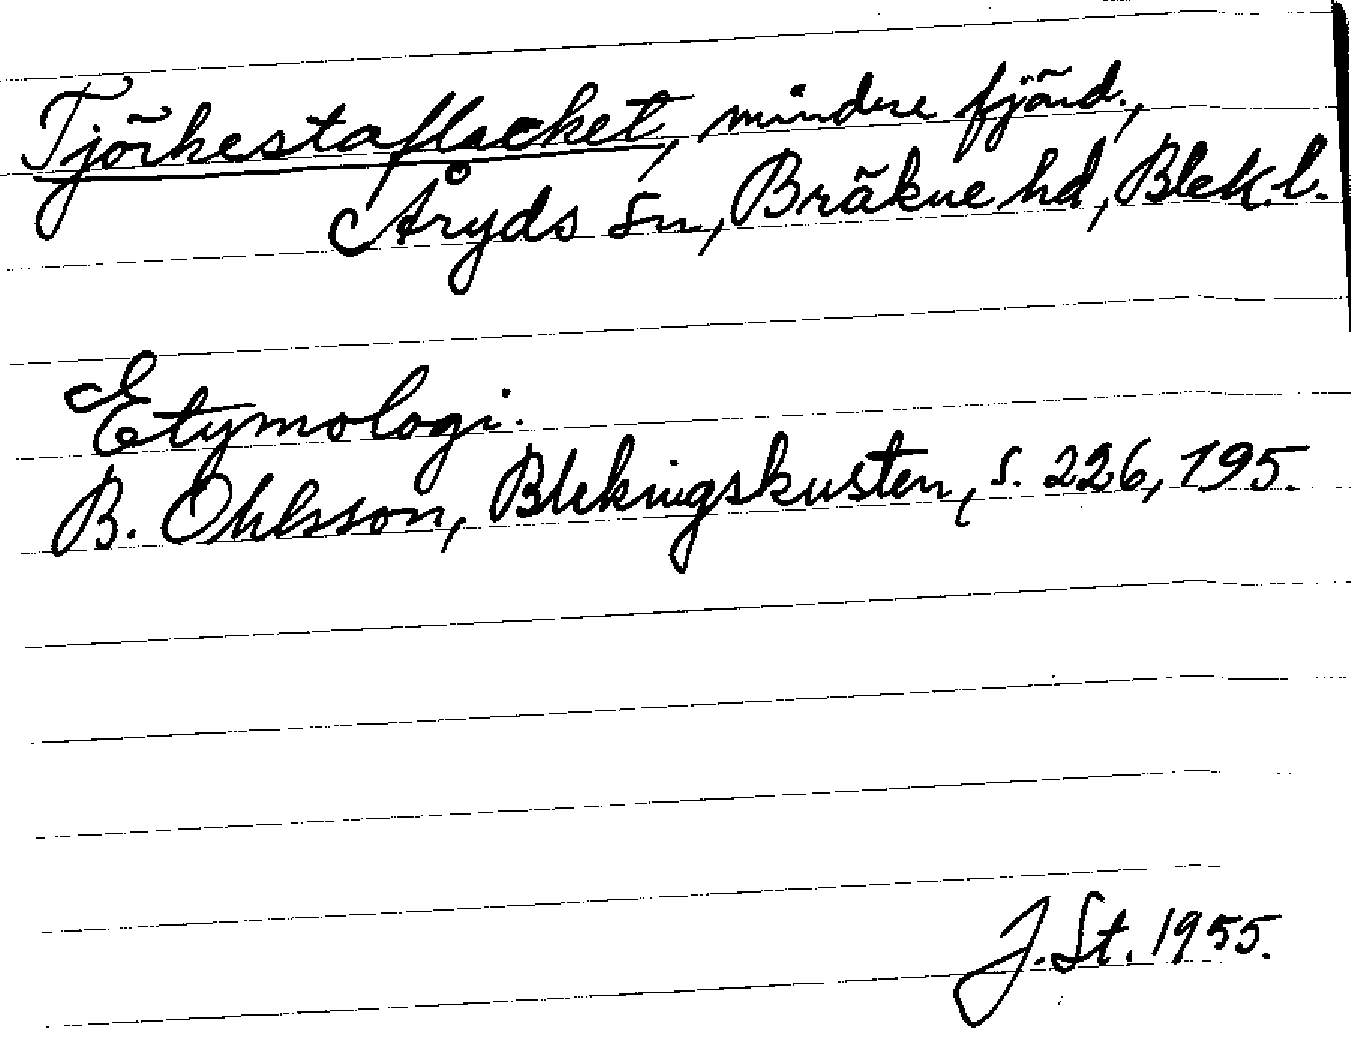 Tjörkestaflacket, mindre fjärd.,
Åryds sn, Bräkne hd, Blek. l.
Etymologi.
B. Ohlsson, Blekingskusten, s. 226, 195.
J. St. 1955.